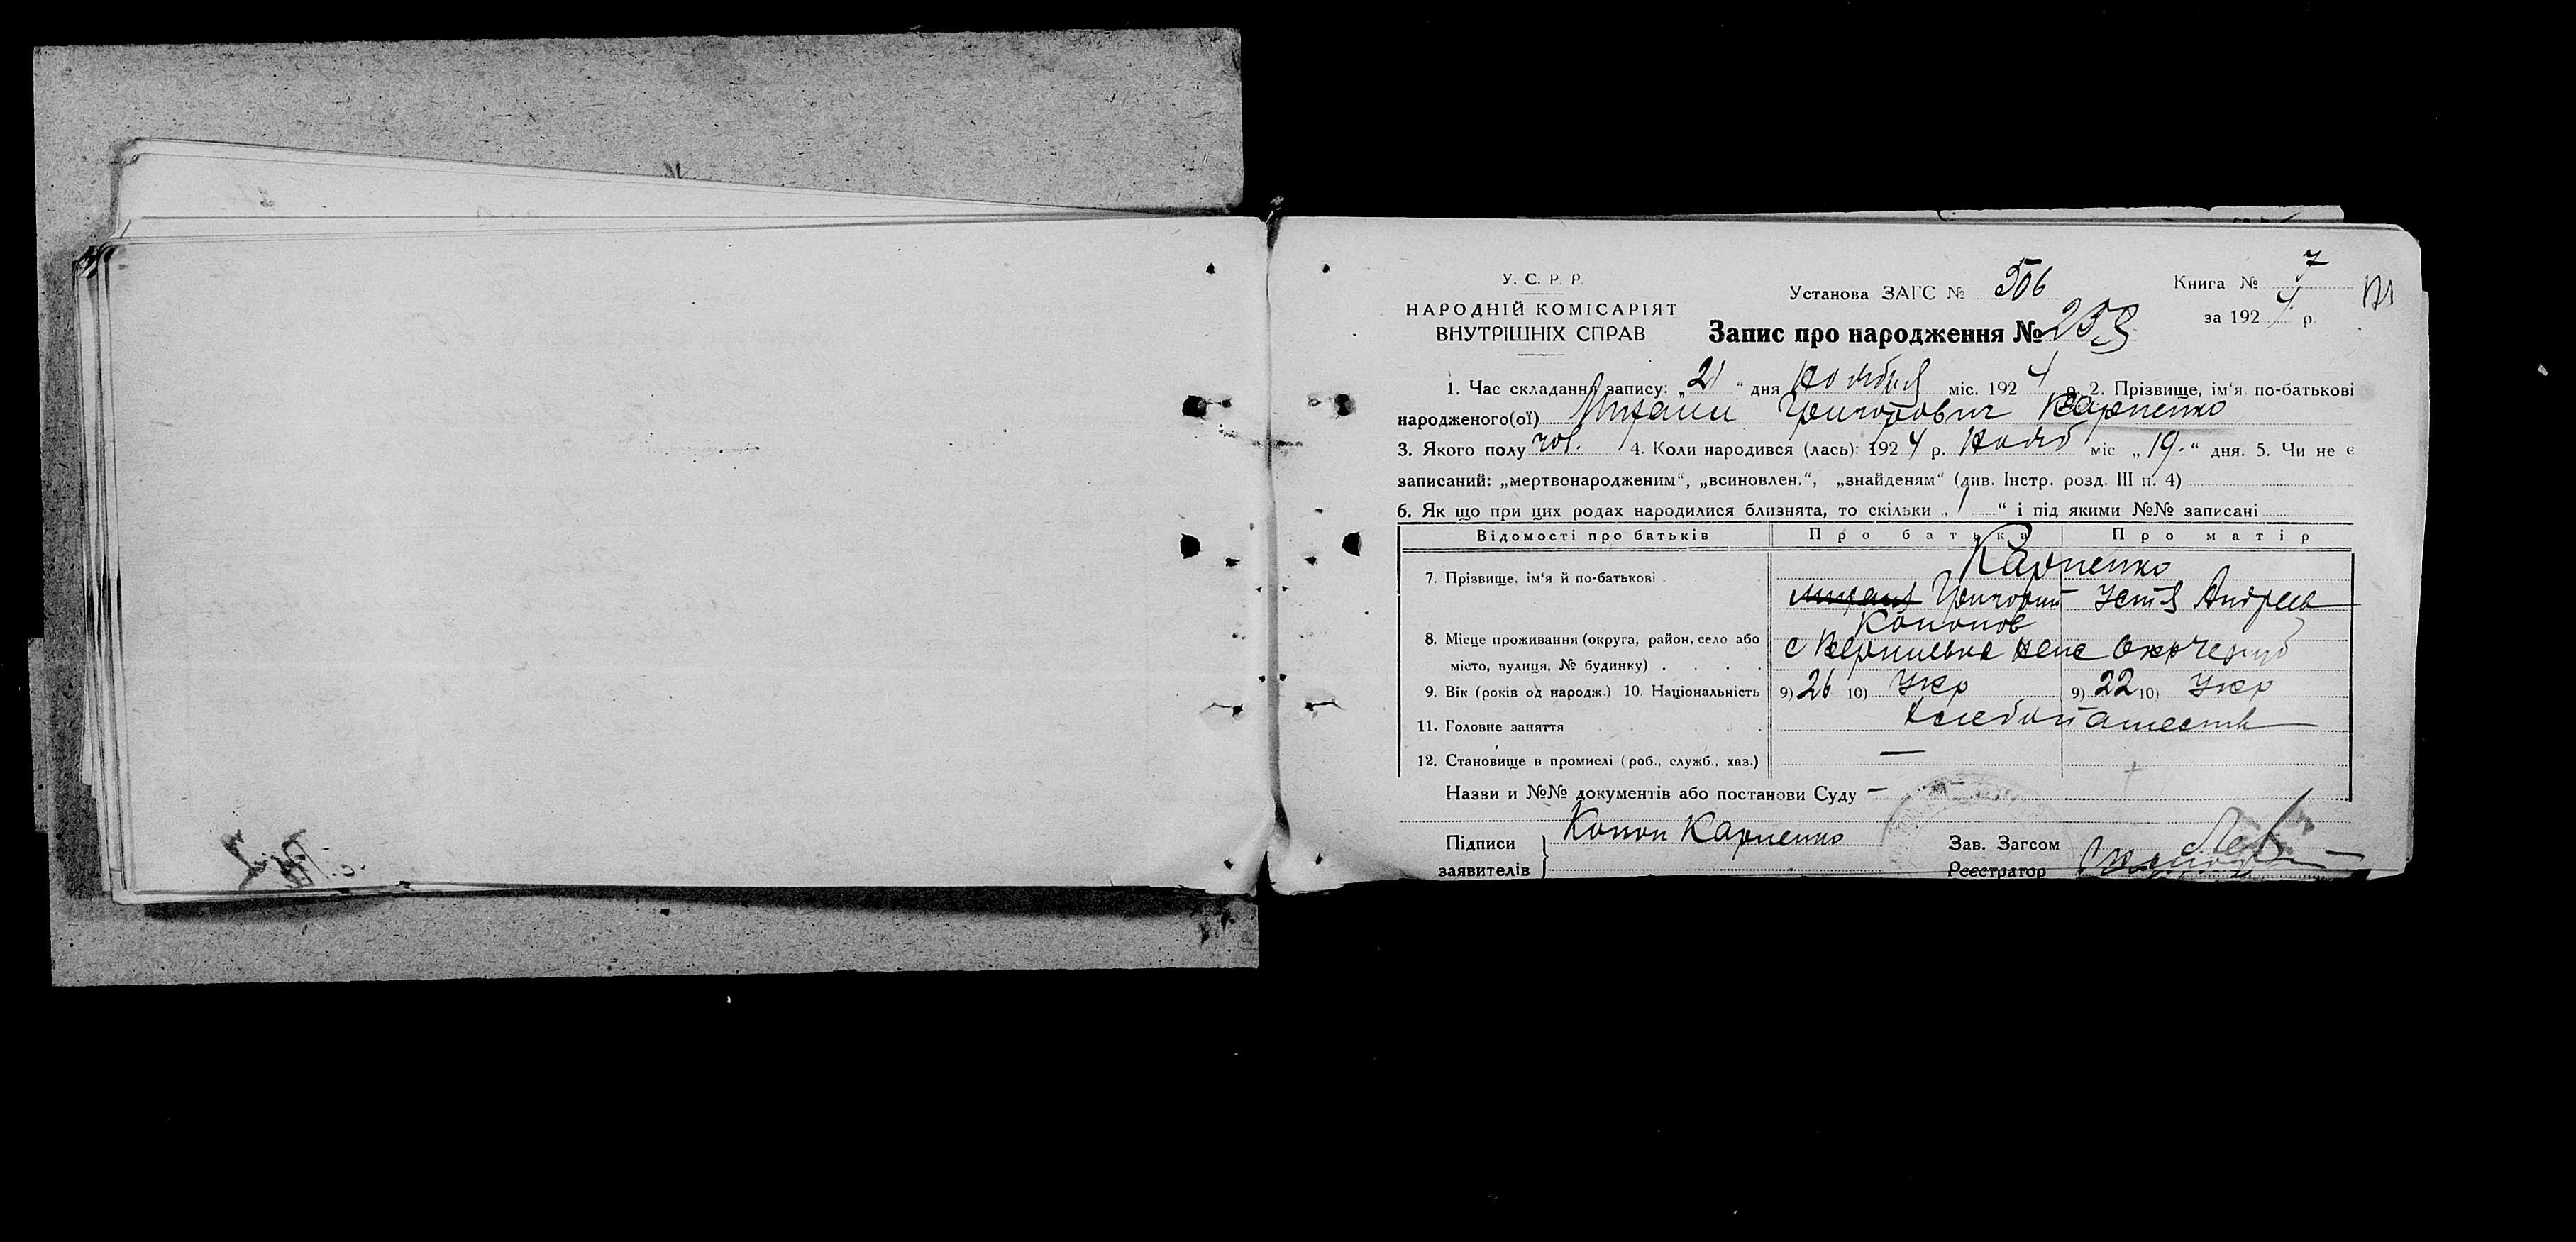 У. С. Р. Р.
НАРОДНІЙ КОМІСАРІЯТ
ВНУТРІШНІХ СПРАВ
Установа ЗАГС № 506
Книга № 7
за 1924 р.
Запис про народження № 253
1. Час складання запису: „21“ дня Ноября міс. 1924 р. 2. Прізвище, ім‘я по-батькові
народженого(ої) Михаил Григорович Карпенко
3. Якого полу чол. 4. Коли народився (лась): 1924 р. Нояб міс „19.“ дня. 5. Чи не є
записаний: „мертвонародженим“, „всиновлен.“, „знайденям“ (див. Інстр. розд. III п. 4)
6. Як що при цих родах народилися близнята, то скільки „1“ і під якими №№ записані
Відомості про батьків Про батька Про матір
7. Прізвище, ім‘я й по-батькові Карпенко
Григорий Устя Андреев
Кононов
8. Місце проживання (округа, район, село або
місто, вулиця, № будинку) с
9. Вік (років од народж.) 10. Національність 9) 26 10) Укр 9) 22 10) Укр
11. Головне заняття хлебопашеств
12. Становище в промислі (роб., служб., хаз.) —
Назви и №№ документів або постанови Суду —
Підписи
заявителів
Конон Карпенко
Зав. Загсом
Реєстратор